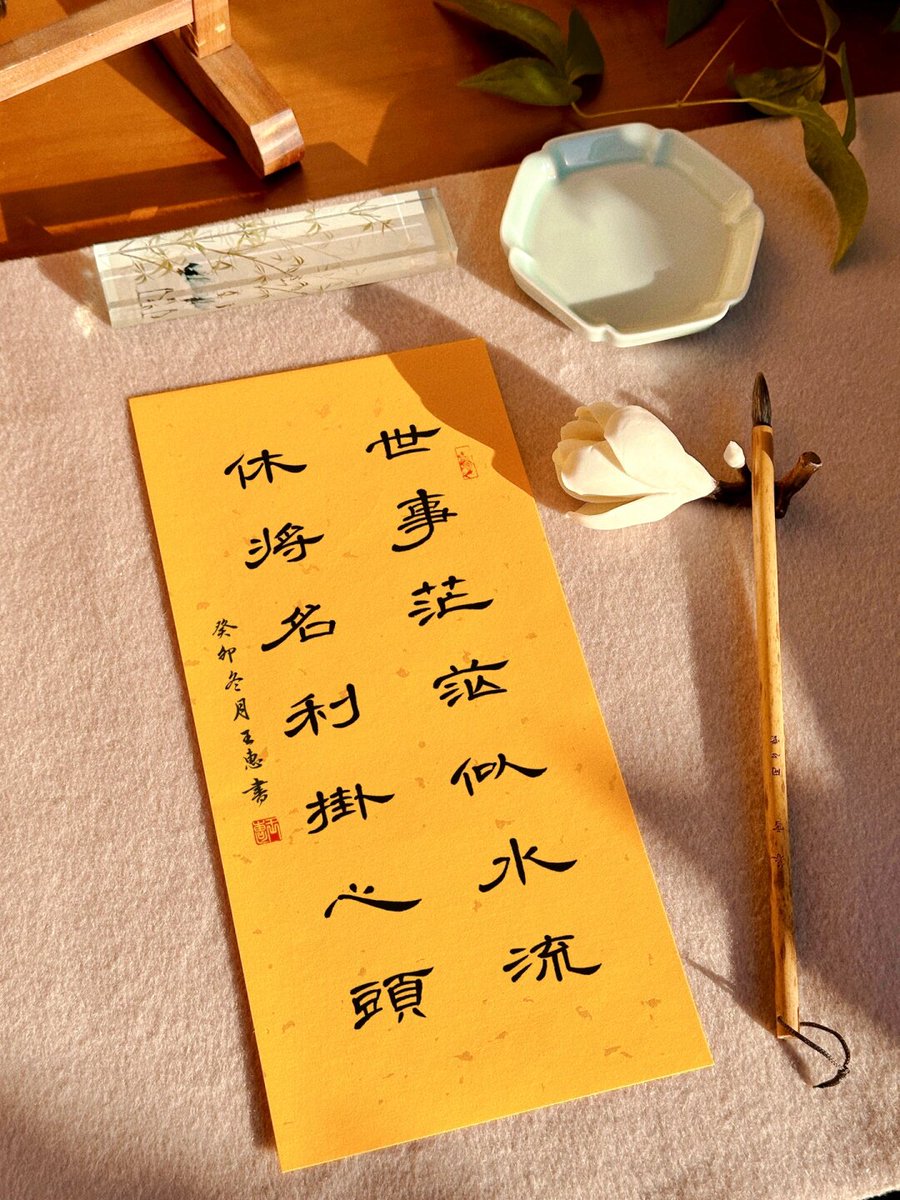 世事茫茫似水流
休将名利掛心頭
癸卯冬月王惠書